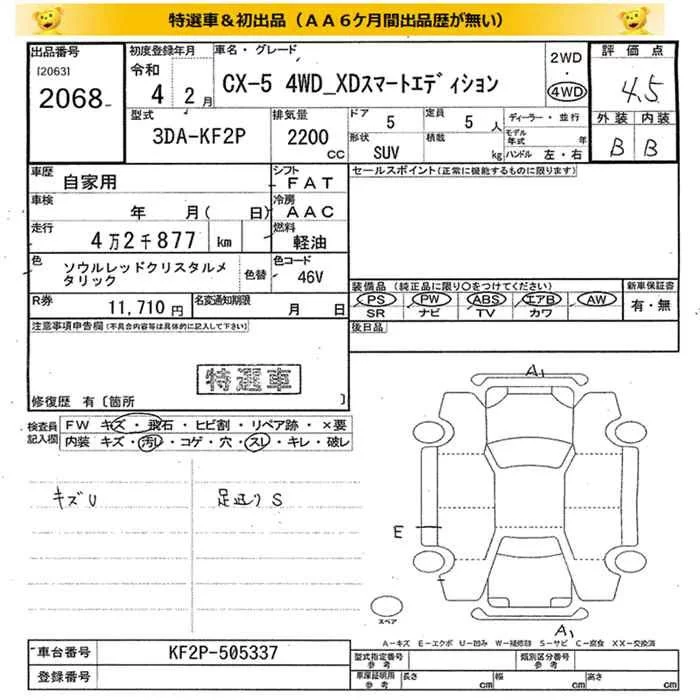 特選車＆初出品（ＡＡ６ケ月間出品歴が無い）
出品番号
[2063]
2068
初度登録年月
令和
4 2月
車名・グレード
CX-5 4WD_XDスマートエディション
2WD
・
4WD
評価点
4.5
外装 内装
B B
型式
3DA-KF2P
排気量
2200
CC
ドア
5
定員
5 人
形状
SUV
積載
kg
ディーラー・並行
モデル年式 年
ハンドル 左・右
車歴
自家用
シフト
FAT
車検
年 月( 日)
冷房
AAC
走行
4万2千877 km
燃料
軽油
色
ソウルレッドクリスタルメタリック
色替
色コード
46V
R券
11,710円
名変通知期限
月 日
セールスポイント(正常に機能するものに限ります)
装備品 (純正品に限り○をつけてください)
PS PW ABS エアB AW
SR ナビ TV カワ
新車保証書
有・無
後日品
注意事項申告欄(不具合内容等は具体的に記入して下さい)
特選車
修復歴 有〔箇所 〕
検査員記入欄
FW キズ・飛石・ヒビ割・リペア跡・×要
内装 キズ・汚レ・コゲ・穴・スレ・キレ・破レ
キズU
足廻りS
A1
E
スペア
A1
A-キズ E-エクボ U-凹み W-補修跡 S-サビ C-腐食 XX-交換済
車台番号
KF2P-505337
登録番号
型式指定番号
参考
類別区分番号
参考
車庫証明用
参考
長さ cm 幅 cm 高さ cm